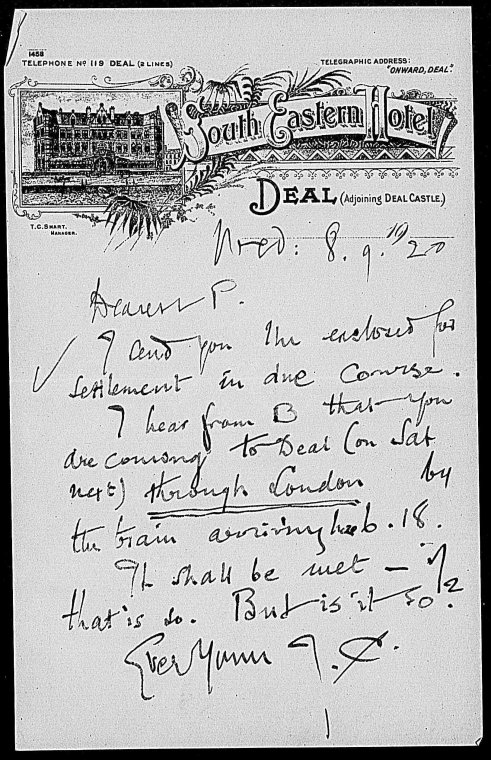 1458
TELEPHONE Nº 119 DEAL (2 LINES)
TELEGRAPHIC ADDRESS:
"ONWARD, DEAL."
South Eastern Hotel
DEAL (Adjoining DEAL CASTLE.)
T.C. SMART.
MANAGER.
Wed: 8.9.1920
Dearest P.
I send you the enclosed for
settlement in due course.
I hear from B that you
are coming to Deal (on Sat
next) through London by
the train arriving here 6.18.
It shall be met – if
that is so. But is it so?
Ever Yours J.C.